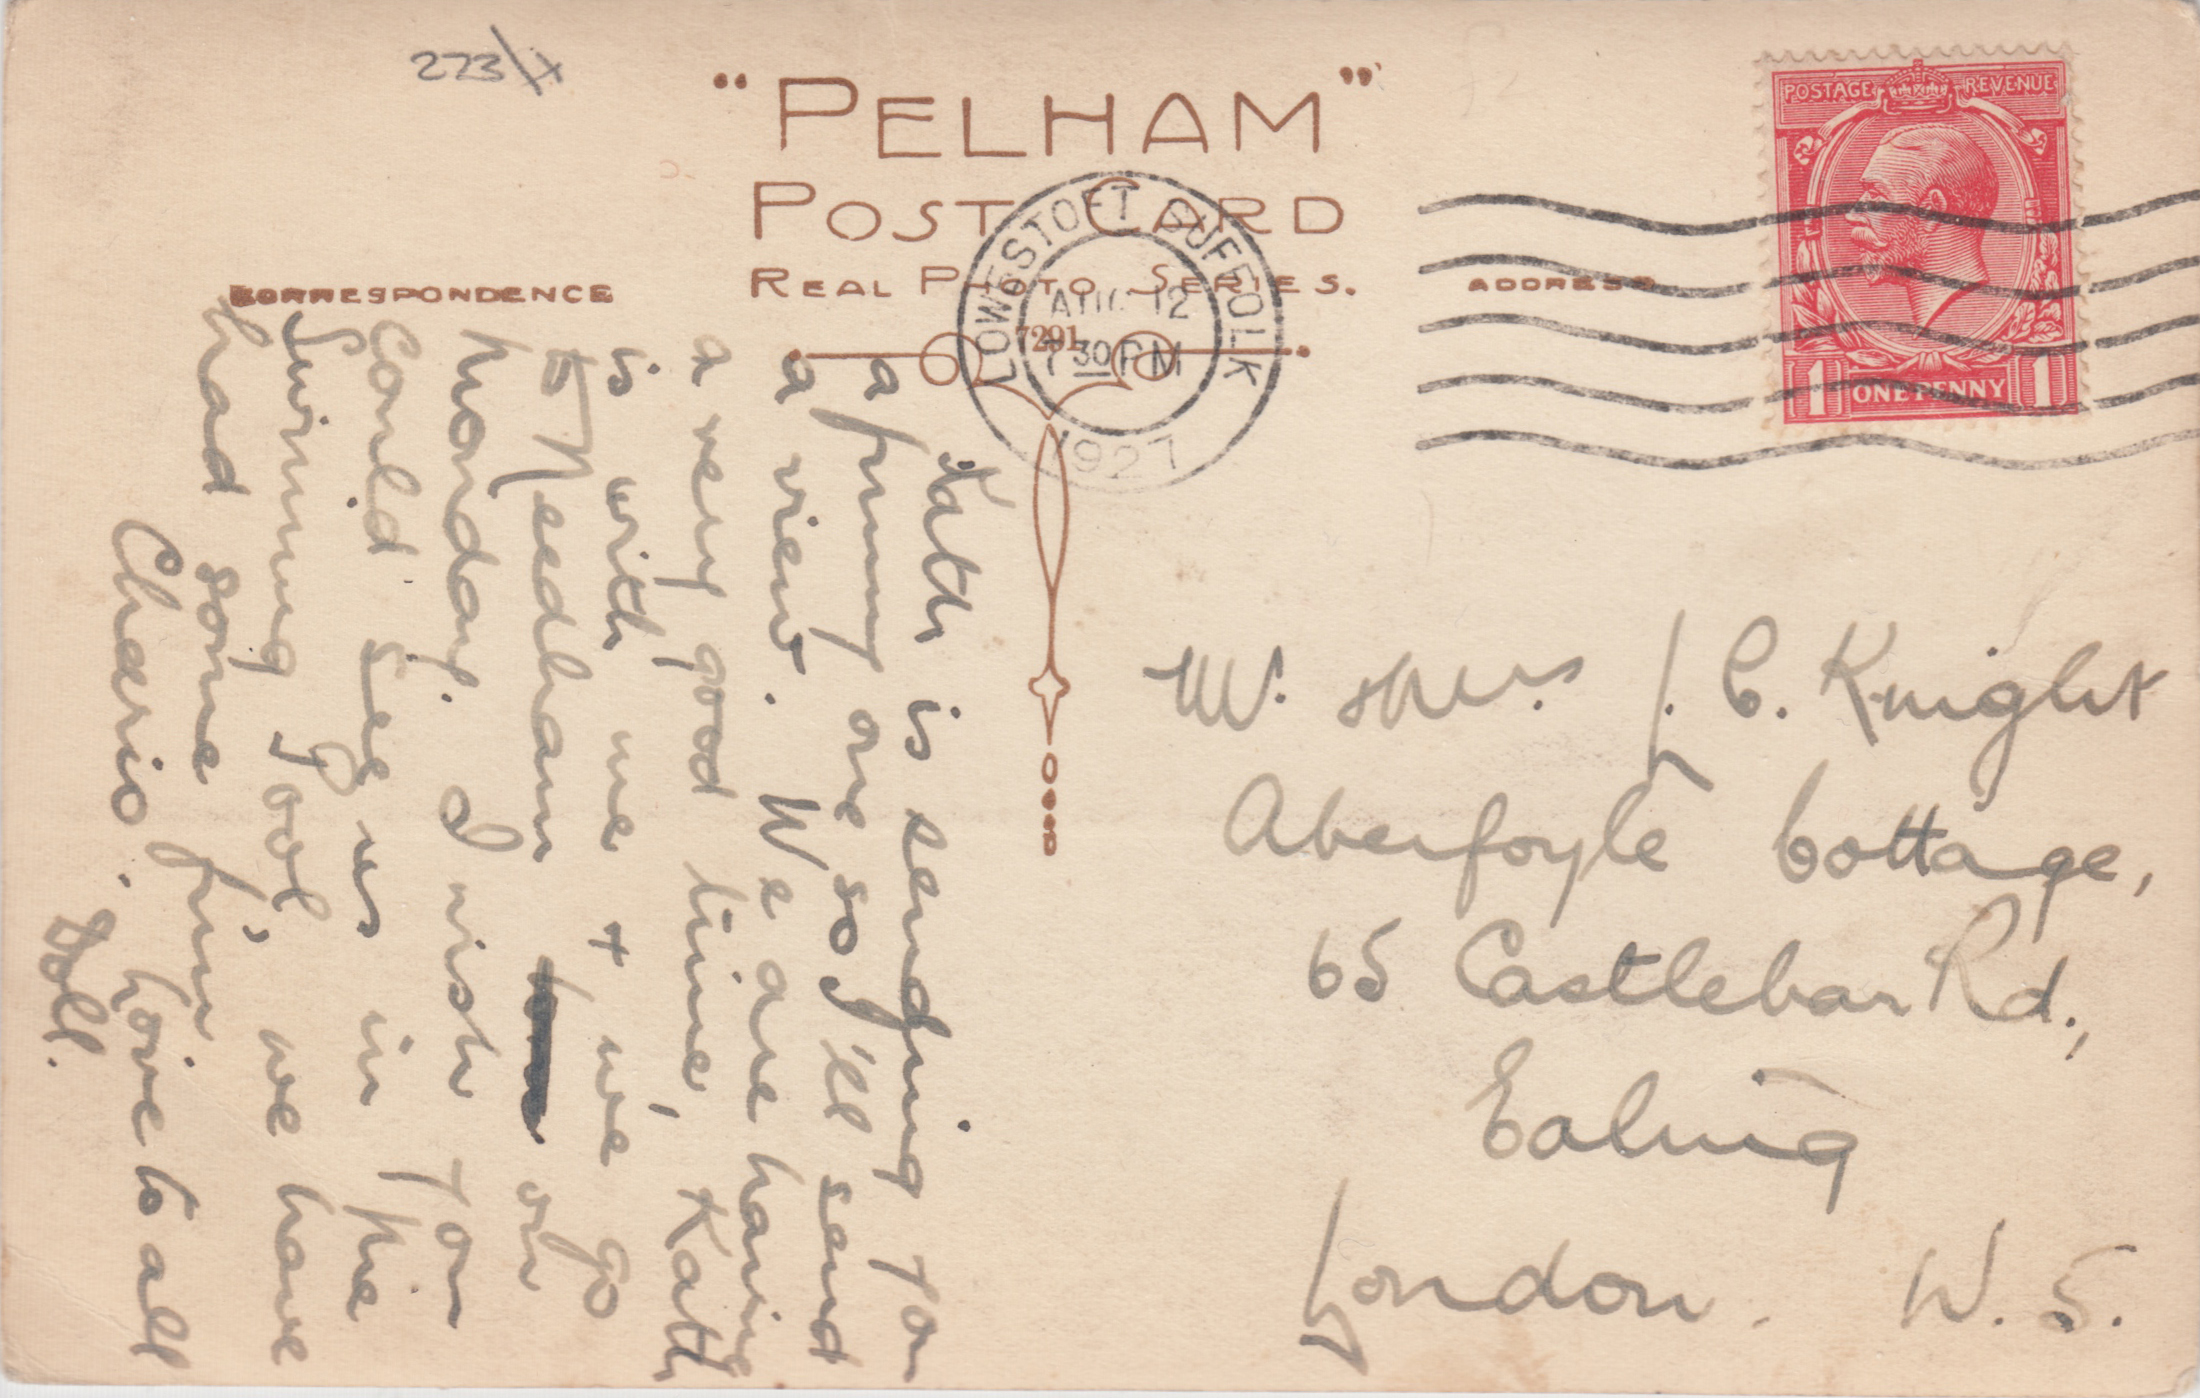 223/X
"PELHAM"
POST CARD
REAL PHOTO SERIES.
CORRESPONDENCE
ADDRESS
7291
LOWESTOFT SUFFOLK
AUG 12
7 30 PM
1927
POSTAGE REVENUE
1 ONE PENNY 1
Kath is sending you
a funny one so I'll send
a view. We are having
a very good time, Kath
is with me + we go
to Needham on
Monday. I wish you
could see us in the
Swiming Pool, we have
had some fun
Cheerio. Love to all
Doll.
Mr. & Mrs. J. C. Knight
Aberfoyle Cottage,
65 Castlebar Rd.,
Ealing
London. W. 5.